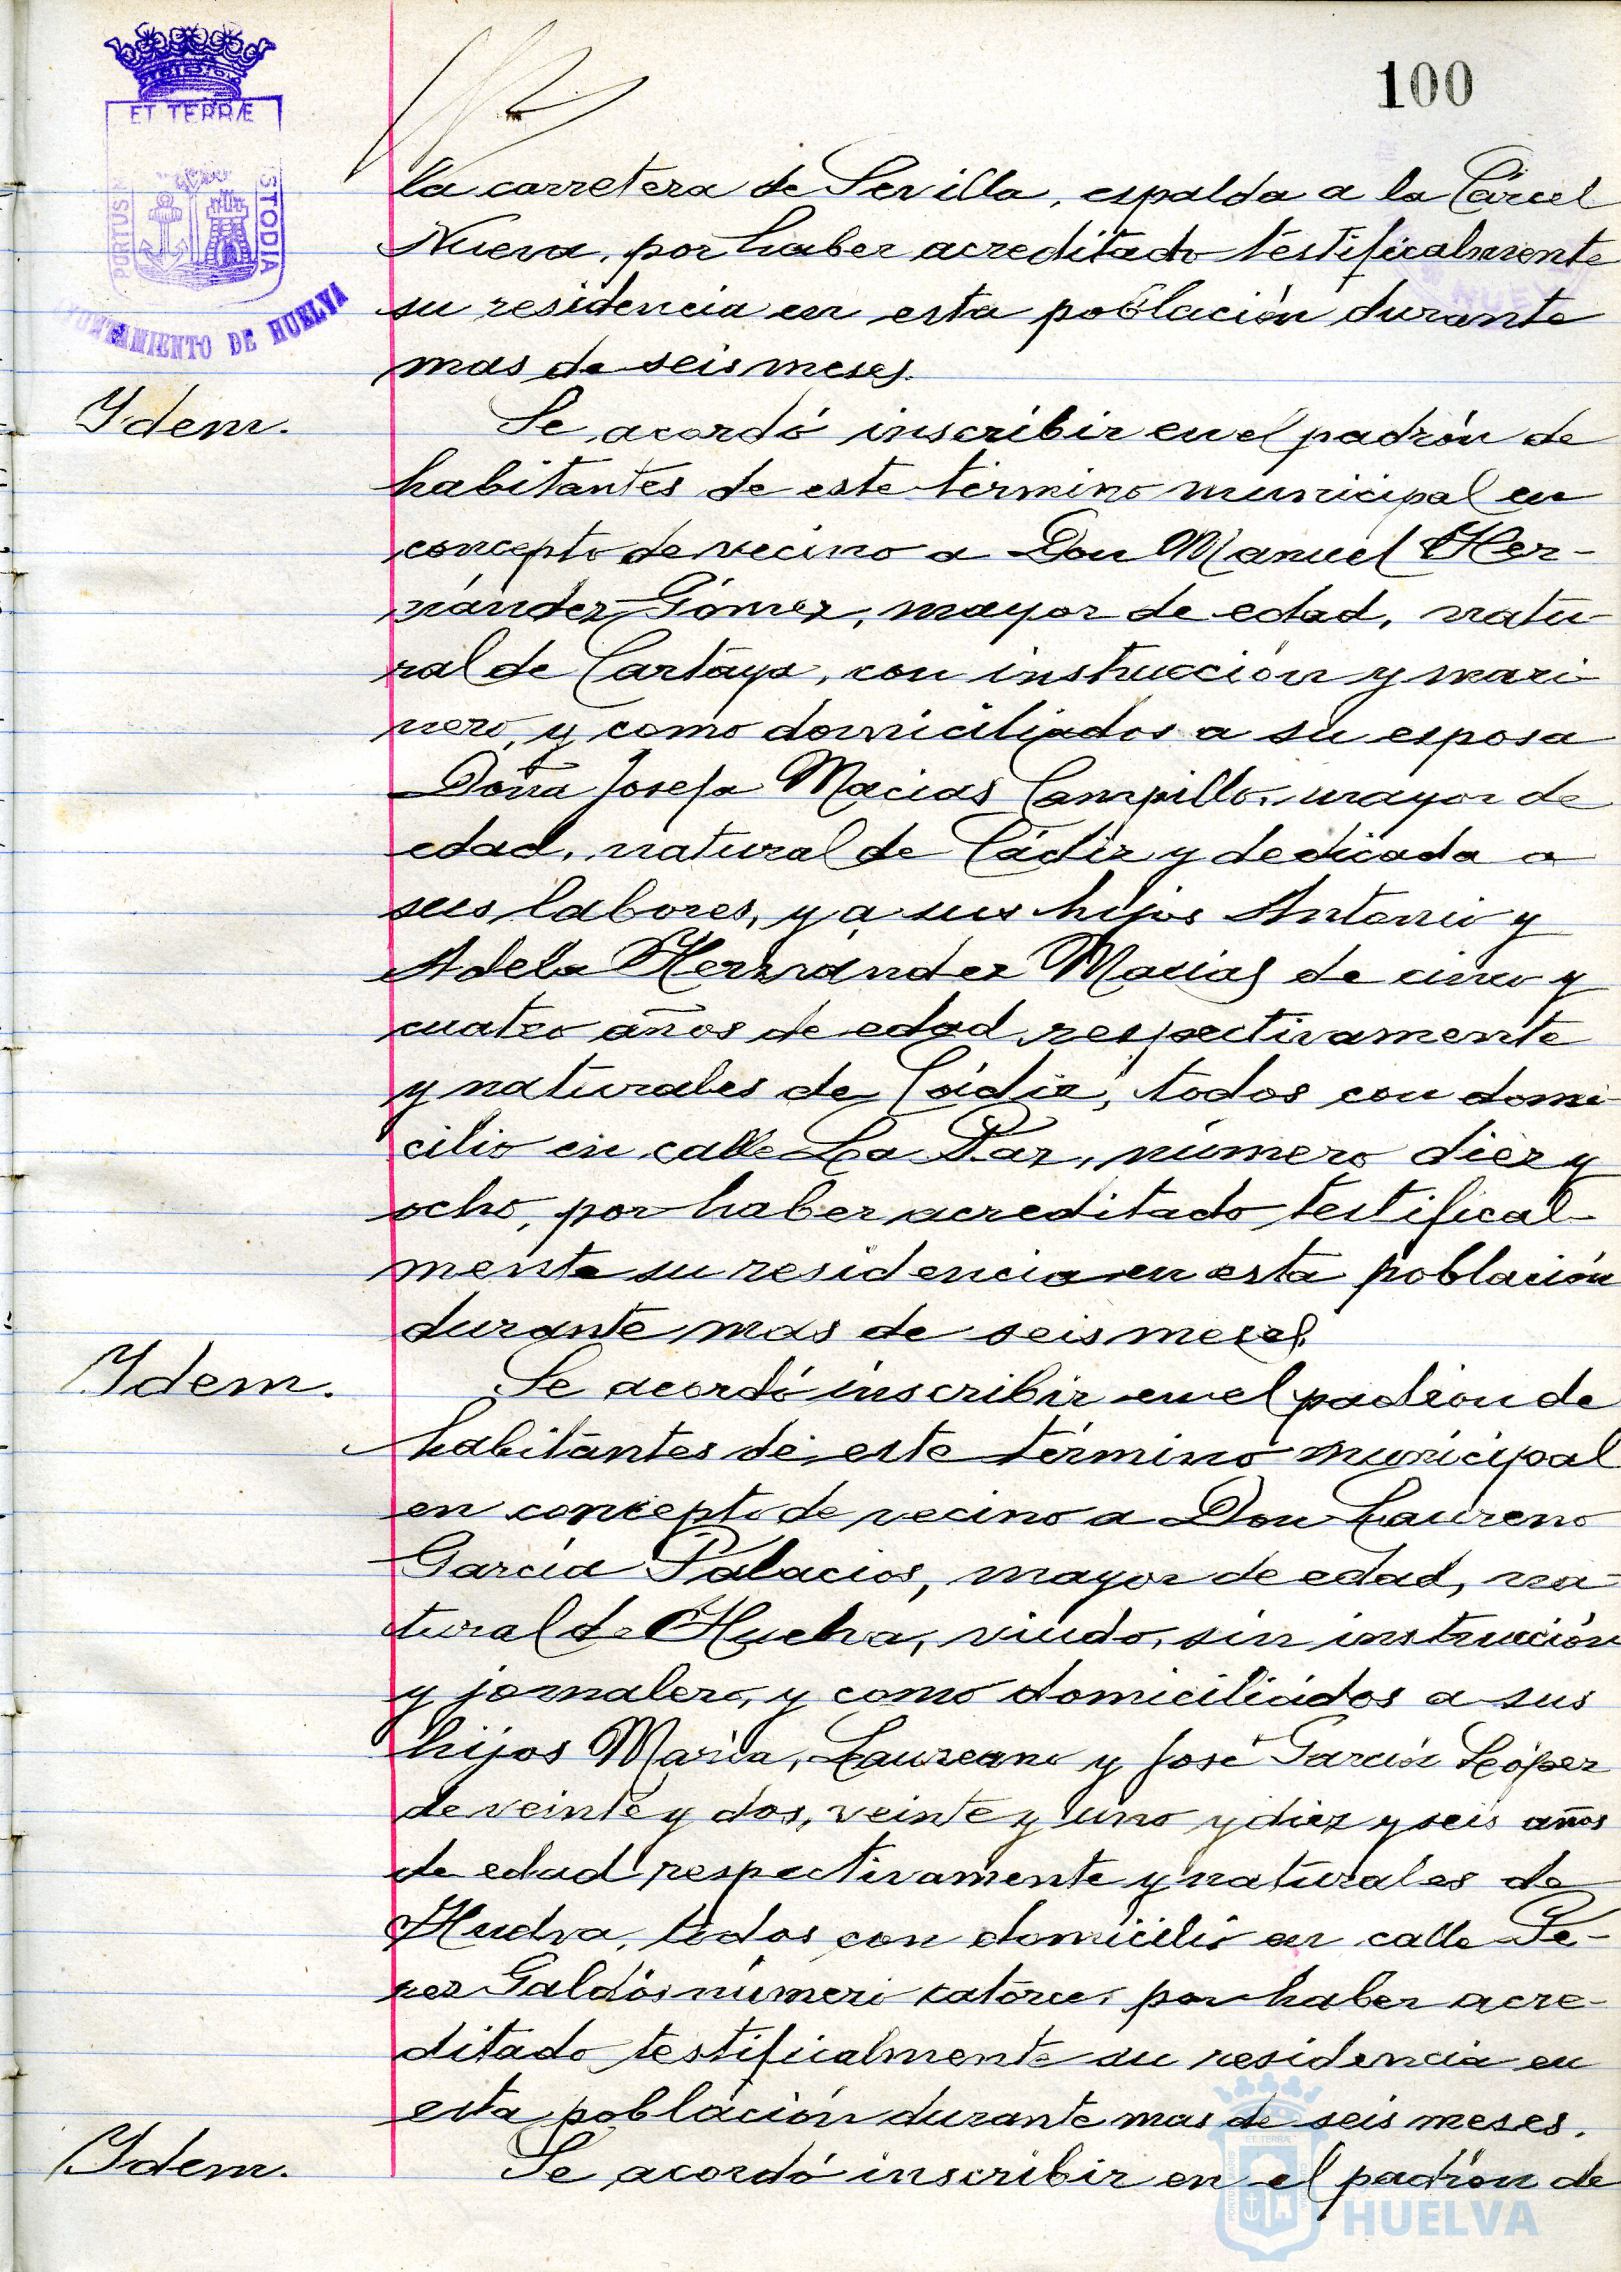 100
ET TERRÆ
PORTUS M
STODIA
AYUNTAMIENTO DE HUELVA
la carretera de Sevilla, espalda a la Cárcel
Nueva, por haber acreditado testificalmente
su residencia en esta población durante
mas de seis meses.
Ydem.
Se acordó inscribir en el padrón de
habitantes de este término municipal en
concepto de vecino a Don Manuel Her-
nández Gómez, mayor de edad, natu-
ral de Cartaya, con instrucción y mari-
nero, y como domiciliados a su esposa
Doña Josefa Macias Campillo, mayor de
edad, natural de Cádiz y dedicada a
sus labores, y a sus hijos Antonio y
Adela Hernández Macias de cinco y
cuatro años de edad respectivamente
y naturales de Cádiz, todos con domi-
cilio en calle La Paz, número diez y
ocho, por haber acreditado testifical-
mente su residencia en esta población
durante mas de seis meses.
Ydem.
Se acordó inscribir en el padrón de
habitantes de este término municipal
en concepto de vecino a Don Laureno
García Palacios, mayor de edad, na-
tural de Huelva, viudo, sin instrucción
y jornalero, y como domiciliados a sus
hijos María, Laureano y José García López
de veinte y dos, veinte y uno y diez y seis años
de edad respectivamente y naturales de
Huelva, todos con domicilio en calle Pé-
rez Galdós número catorce, por haber acre-
ditado testificalmente su residencia en
esta población durante mas de seis meses.
Ydem.
Se acordó inscribir en el padrón de
HUELVA